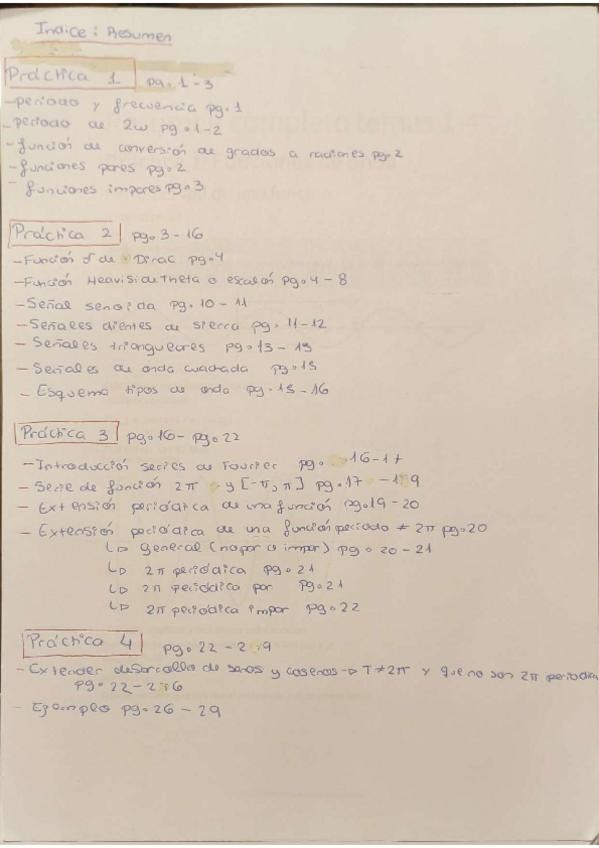 Indice: Resumen
Práctica 1 pg. 1-3
- periodo y frecuencia pg.1
- periodo de 2ω pg.1-2
- función de conversión de grados a radianes pg.2
- funciones pares pg.2
- funciones impares pg.3
Práctica 2 pg.3-16
- Función δ de Dirac pg.4
- Función HeavisideTheta o escalón pg.4-8
- Señal senoida pg.10-11
- Señales dientes de sierra pg.11-12
- Señales triangulares pg.13-15
- Señales de onda cuadrada pg.15
- Esquema tipos de onda pg.15-16
Práctica 3 pg.16-pg.22
- Introducción series de Fourier pg. 16-17
- Serie de función 2π y [-π,π] pg.17-19
- Extensión periódica de una función pg.19-20
- Extensión periódica de una función periodo ≠ 2π pg.20
↳ General (no par o impar) pg.20-21
↳ 2π periódica pg.21
↳ 2π periódica par pg.21
↳ 2π periódica impar pg.22
Práctica 4 pg.22-29
- Extender desarrollo de senos y cosenos → T≠2π y que no son 2π periodica
pg.22-26
- Ejemplo pg.26-29